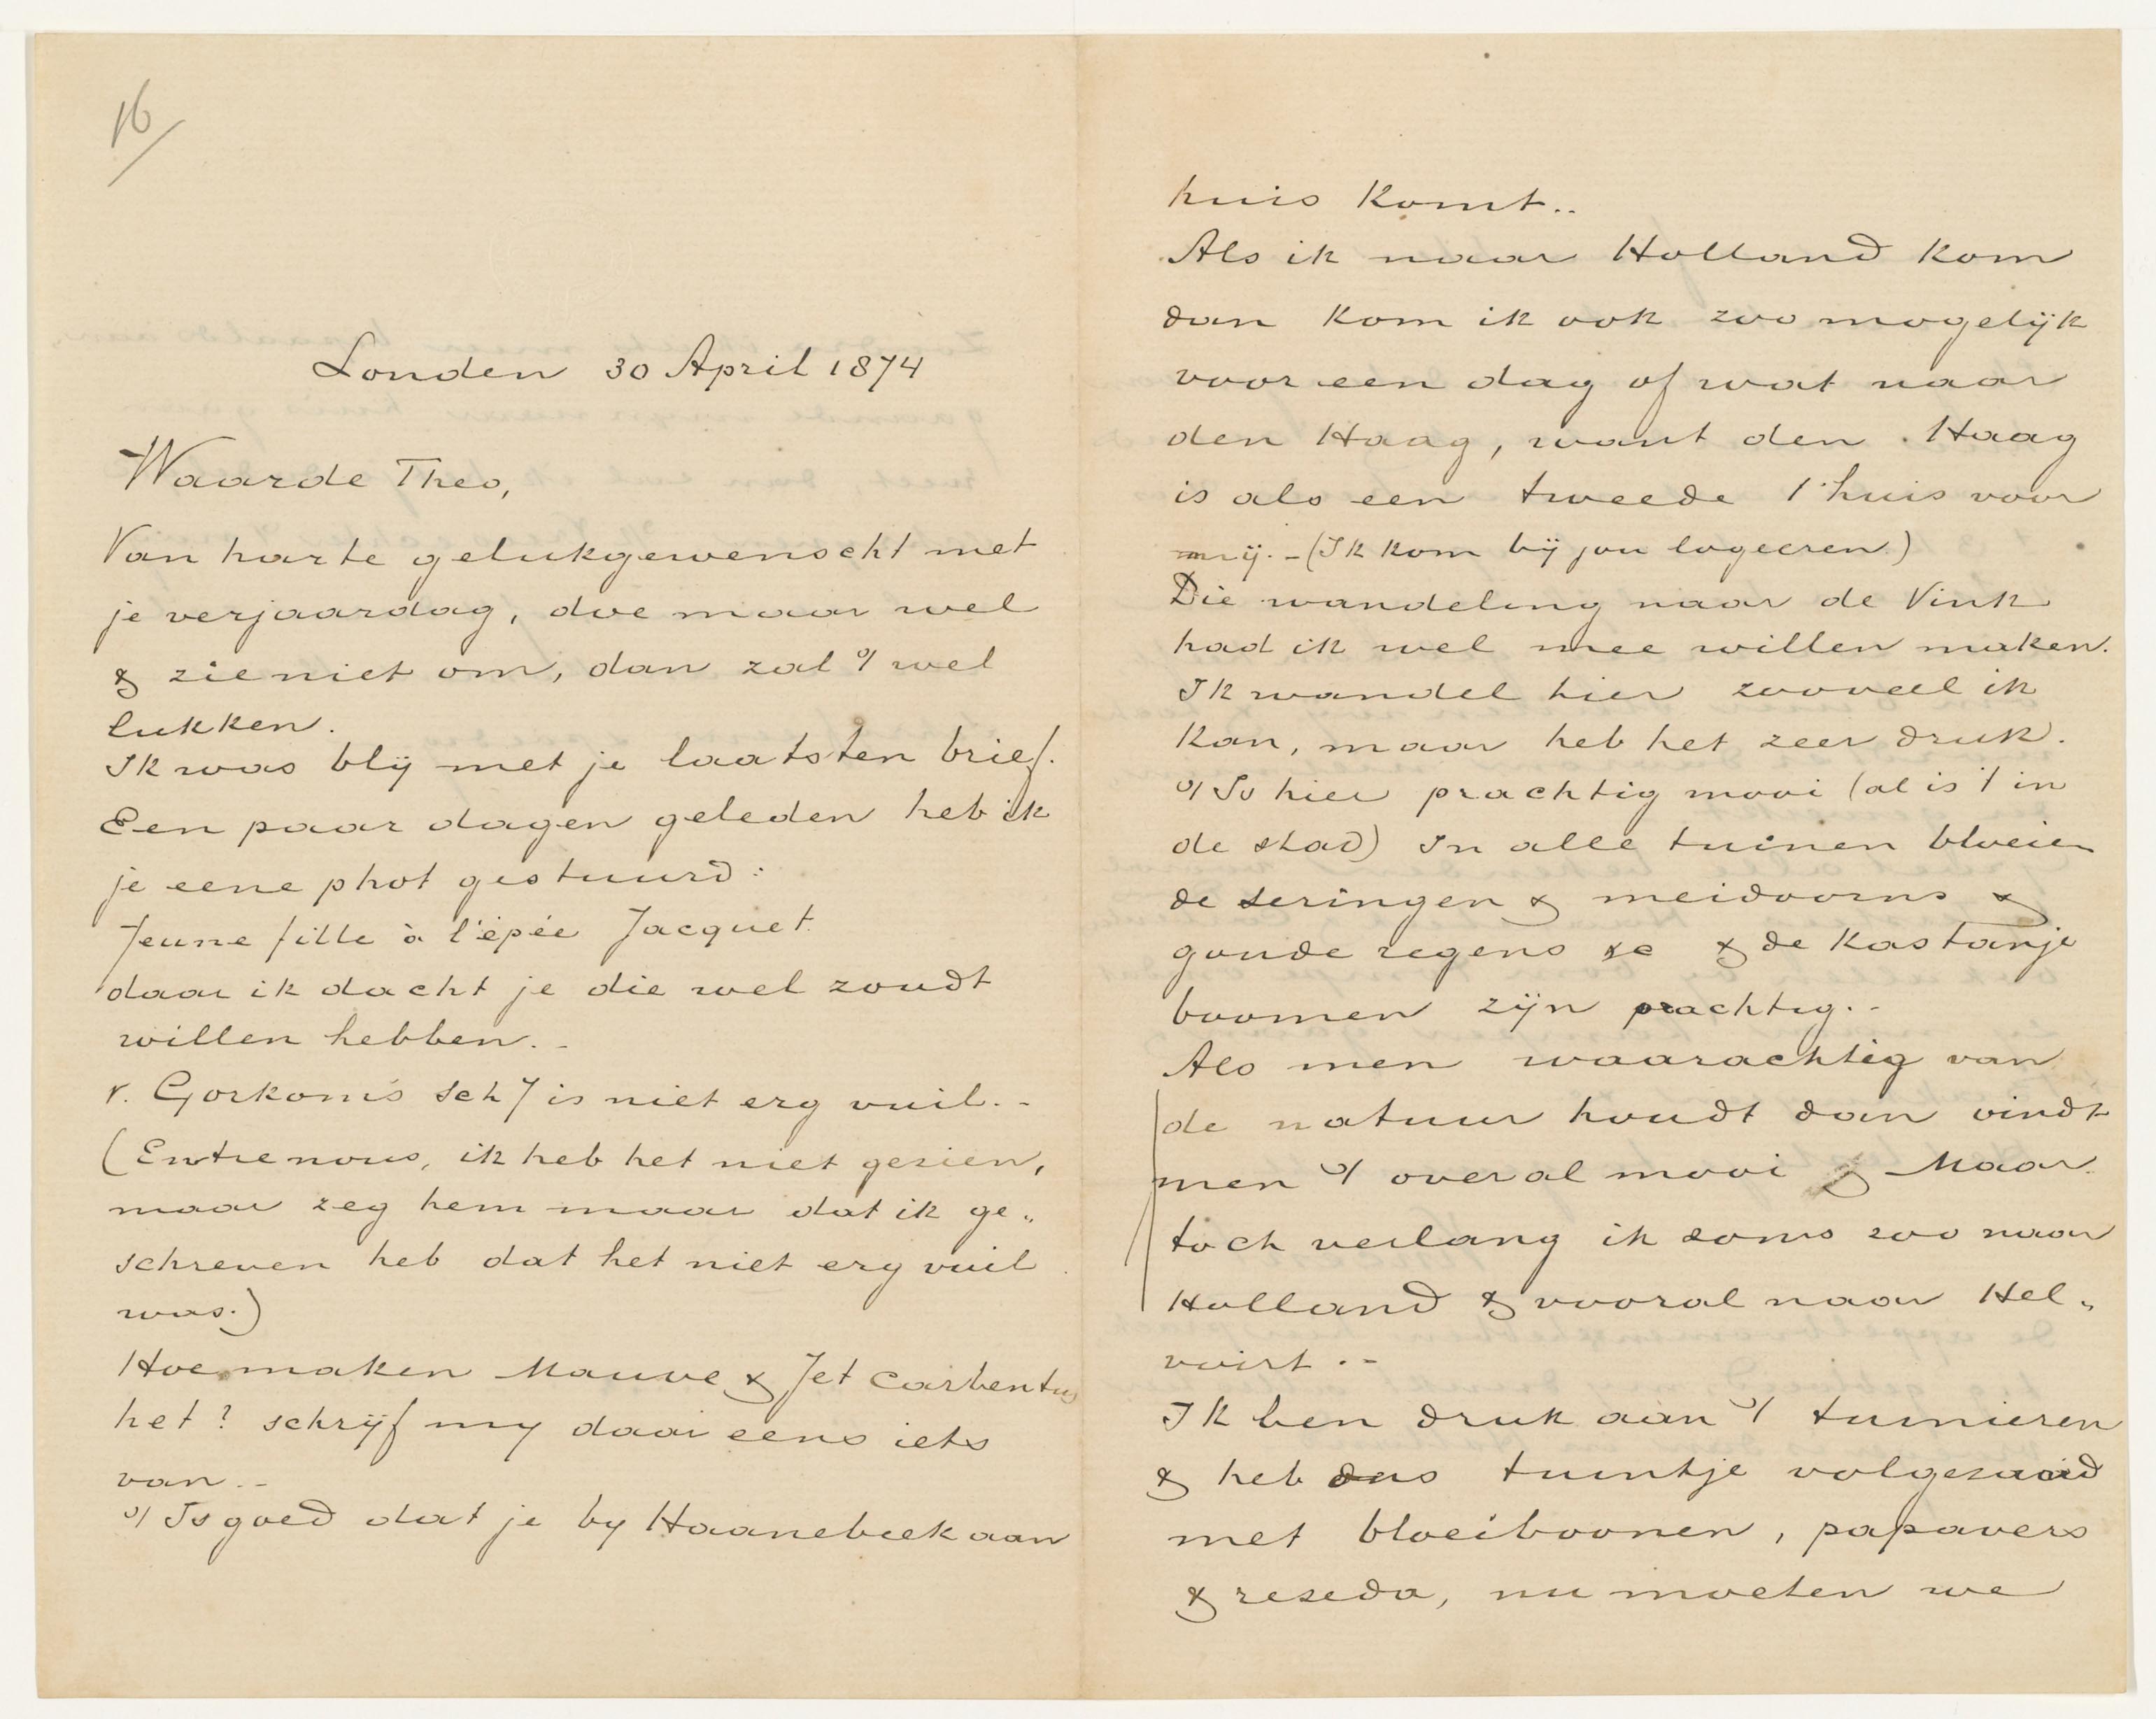 16
Londen 30 April 1874
Waarde Theo,
Van harte gelukgewenscht met
je verjaardag, doe maar wel
& zie niet om, dan zal 't wel
lukken.
Ik was blij met je laatsten brief.
Een paar dagen geleden heb ik
je eene phot gestuurd:
Jeune fille à l'épée Jacquet.
daar ik dacht je die wel zoudt
willen hebben.-
v. Gorkom's schij is niet erg vuil.-
(Entre nous, ik heb het niet gezien,
maar zeg hem maar dat ik ge„
schreven heb dat het niet erg vuil
was.)
Hoe maken Mauve & Jet Carbentus
het? schrijf my daar eens iets
van.-
't Is goed dat je by Haanebeek aan
huis komt..
Als ik naar Holland kom
dan kom ik ook zoo mogelijk
voor een dag of wat naar
den Haag, want den Haag
is als een tweede t'huis voor
mij.-(Ik kom bij jou logeeren)
Die wandeling naar de Vink
had ik wel mee willen maken.
Ik wandel hier zooveel ik
kan, maar heb het zeer druk.
't Is hier prachtig mooi (al is 't in
de stad) In alle tuinen bloeien
de seringen & meidoorns &
goude regens &c & de kastanje
boomen zijn prachtig.-
Als men waarachtig van
de natuur houdt dan vindt
men 't overal mooi & Maar
toch verlang ik soms zoo naar
Holland & vooral naar Hel„
voirt.-
Ik ben druk aan 't tuinieren
& heb ons tuintje volgezaaid
met bloeiboonen, papavers
& reseda, nu moeten we